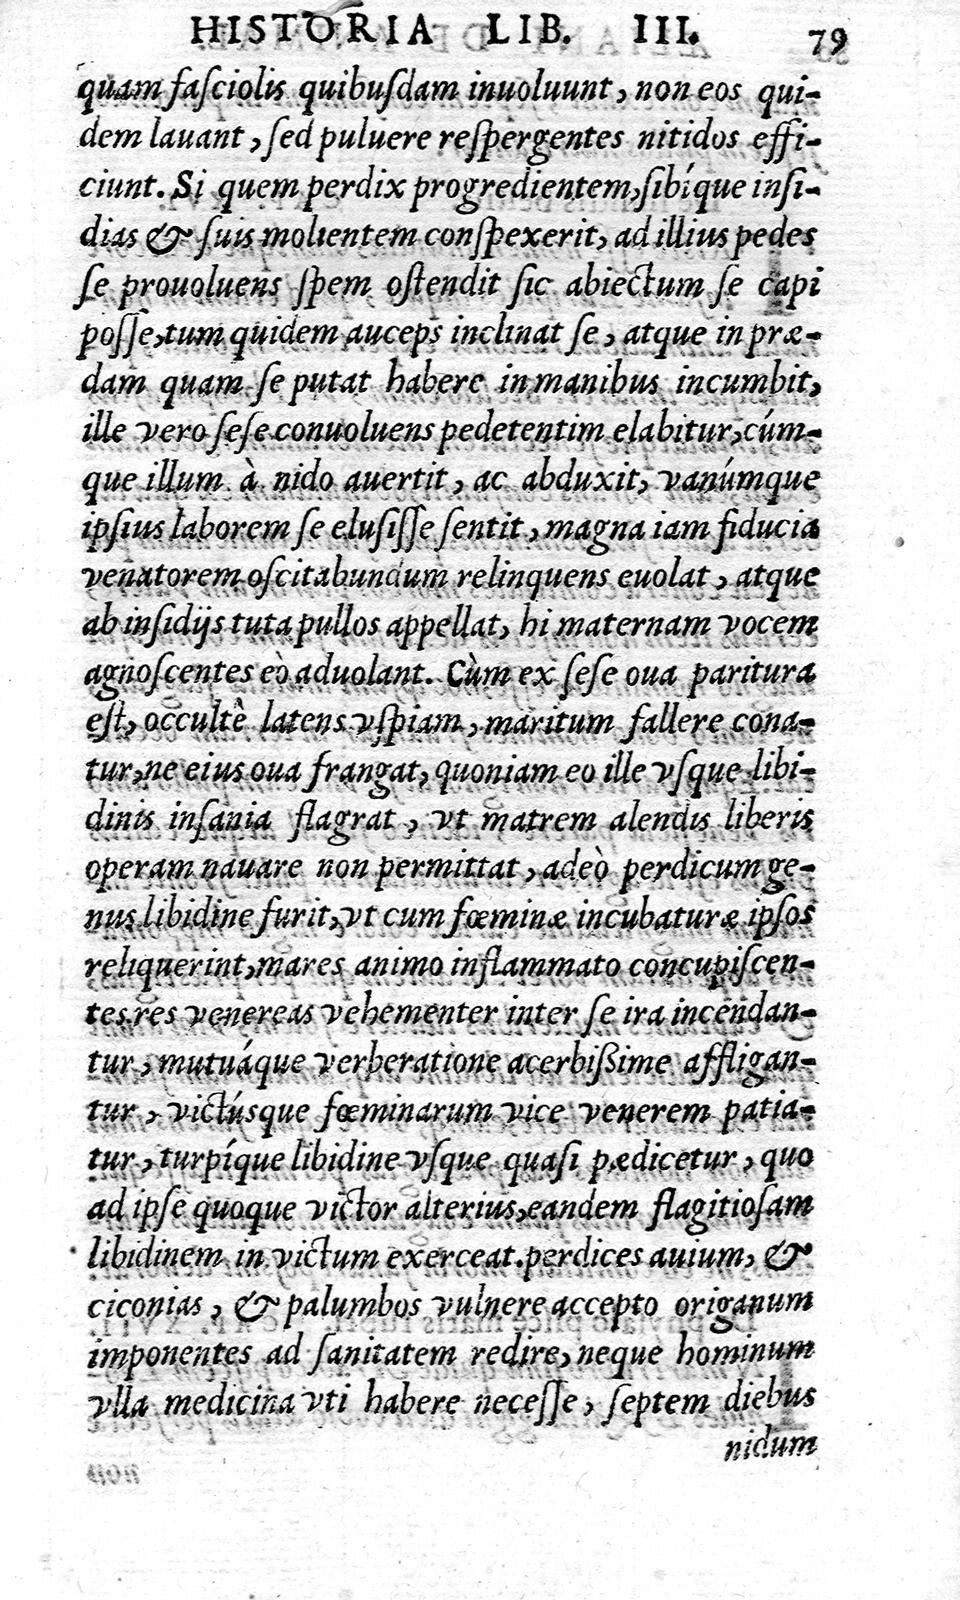 HISTORIA LIB. III. 79
quam faſciolis quibuſdam inuoluunt, non eos qui-
dem lauant, ſed puluere reſpergentes nitidos effi-
ciunt. Si quem perdix progredientem, ſibíque inſi-
dias & ſuis molientem conſpexerit, ad illius pedes
ſe prouoluens ſpem oſtendit ſic abiectum ſe capi
poſſe, tum quidem auceps inclinat ſe, atque in præ-
dam quam ſe putat habere in manibus incumbit,
ille vero ſeſe conuoluens pedetentim elabitur, cúm-
que illum à nido auertit, ac abduxit, vanúmque
ipſius laborem ſe eluſiſſe ſentit, magna iam fiducia
venatorem oſcitabundum relinquens euolat, atque
ab inſidijs tuta pullos appellat, hi maternam vocem
agnoſcentes eò aduolant. Cùm ex ſeſe oua paritura
eſt, occultè latens vſpiam, maritum fallere cona-
tur, ne eius oua frangat, quoniam eo ille vſque libi-
dinis inſania flagrat, vt matrem alendis liberis
operam nauare non permittat, adeò perdicum ge-
nus libidine furit, vt cum fœminæ incubaturæ ipſos
reliquerint, mares animo inflammato concupiſcen-
tes res venereas vehementer inter ſe ira incendan-
tur, mutuáque verberatione acerbißime affligan-
tur, victúsque fœminarum vice venerem patia-
tur, turpíque libidine vſque quaſi pædicetur, quo
ad ipſe quoque victor alterius, eandem flagitioſam
libidinem in victum exerceat. perdices auium, &
ciconias, & palumbos vulnere accepto origanum
imponentes ad ſanitatem redire, neque hominum
vlla medicina vti habere neceſſe, ſeptem diebus
nidum